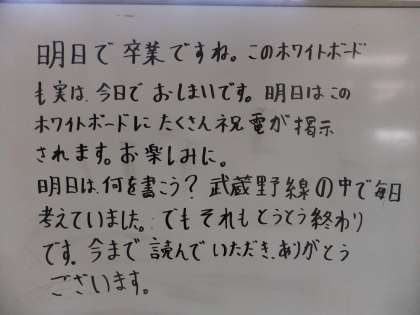 明日で卒業ですね。このホワイトボード
も実は、今日でおしまいです。明日はこの
ホワイトボードにたくさん祝電が掲示
されます。お楽しみに。
明日は、何を書こう？武蔵野線の中で毎日
考えていました。でもそれもとうとう終わり
です。今まで読んでいただき、ありがとう
ございます。